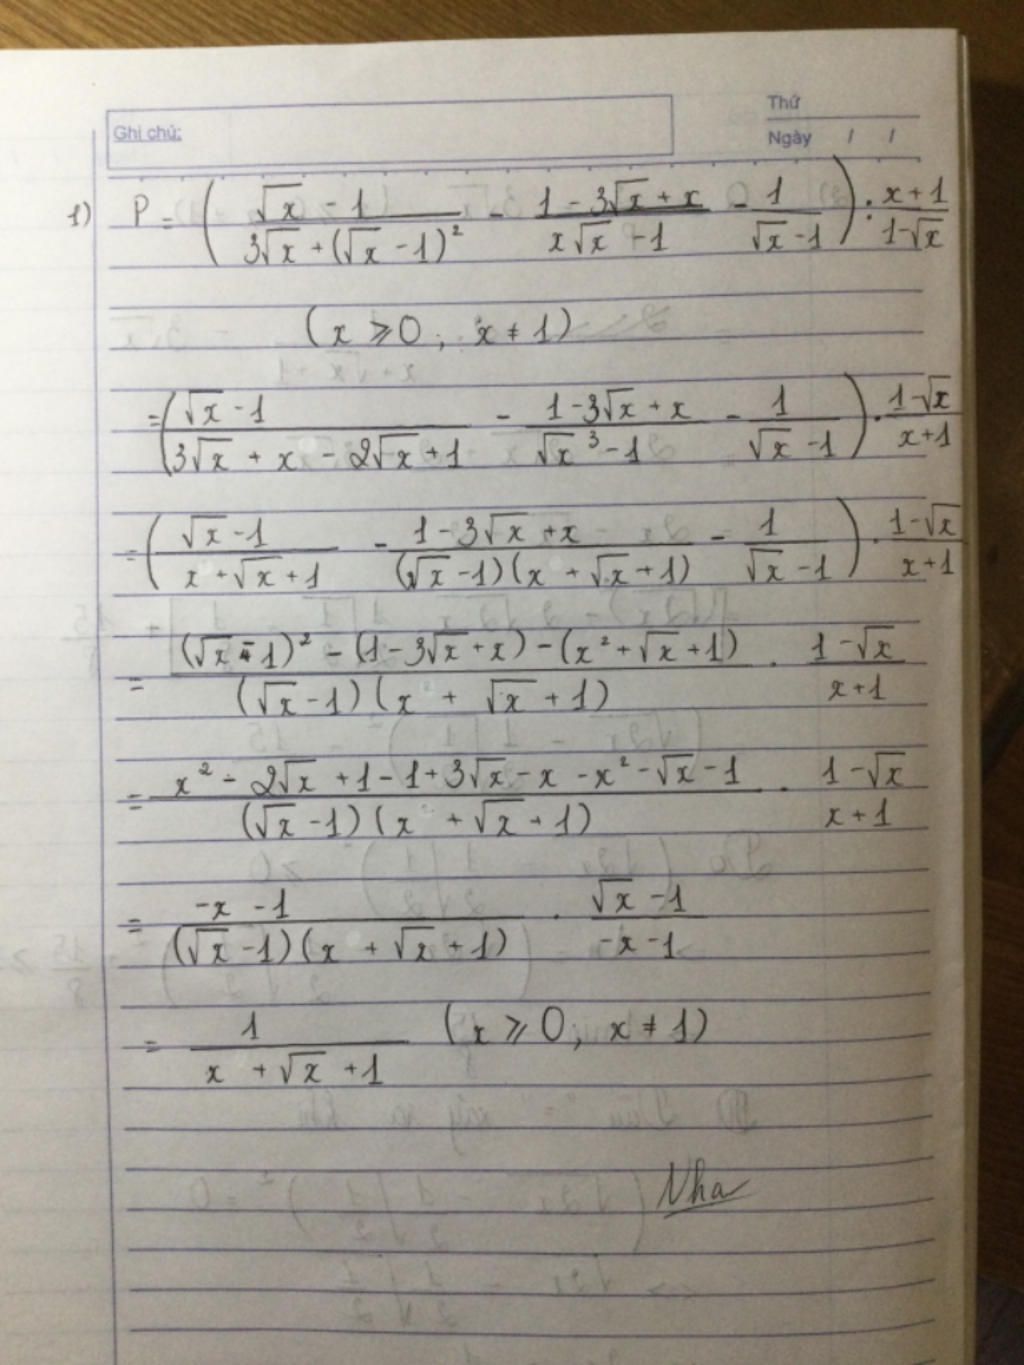 Thứ
Ghi chú:
Ngày / /
1) P = ( (√x - 1)/(3√x + (√x - 1)²) - (1 - 3√x + x)/(x√x - 1) - 1/(√x - 1) ) : (x + 1)/(1-√x)
(x ⩾ 0, x ≠ 1)
= ( (√x - 1)/(3√x + x - 2√x + 1) - (1 - 3√x + x)/(√x³ - 1) - 1/(√x - 1) ) . (1-√x)/(x+1)
= ( (√x - 1)/(x + √x + 1) - (1 - 3√x + x)/((√x - 1)(x + √x + 1)) - 1/(√x - 1) ) . (1-√x)/(x+1)
= ((√x - 1)² - (1 - 3√x + x) - (x² + √x + 1))/((√x - 1)(x + √x + 1)) . (1 - √x)/(x+1)
= (x² - 2√x + 1 - 1 + 3√x - x - x² - √x - 1)/((√x - 1)(x + √x + 1)) . (1 - √x)/(x + 1)
= (-x - 1)/((√x - 1)(x + √x + 1)) . (√x - 1)/(-x - 1)
= 1/(x + √x + 1) (x ⩾ 0, x ≠ 1)
Nha